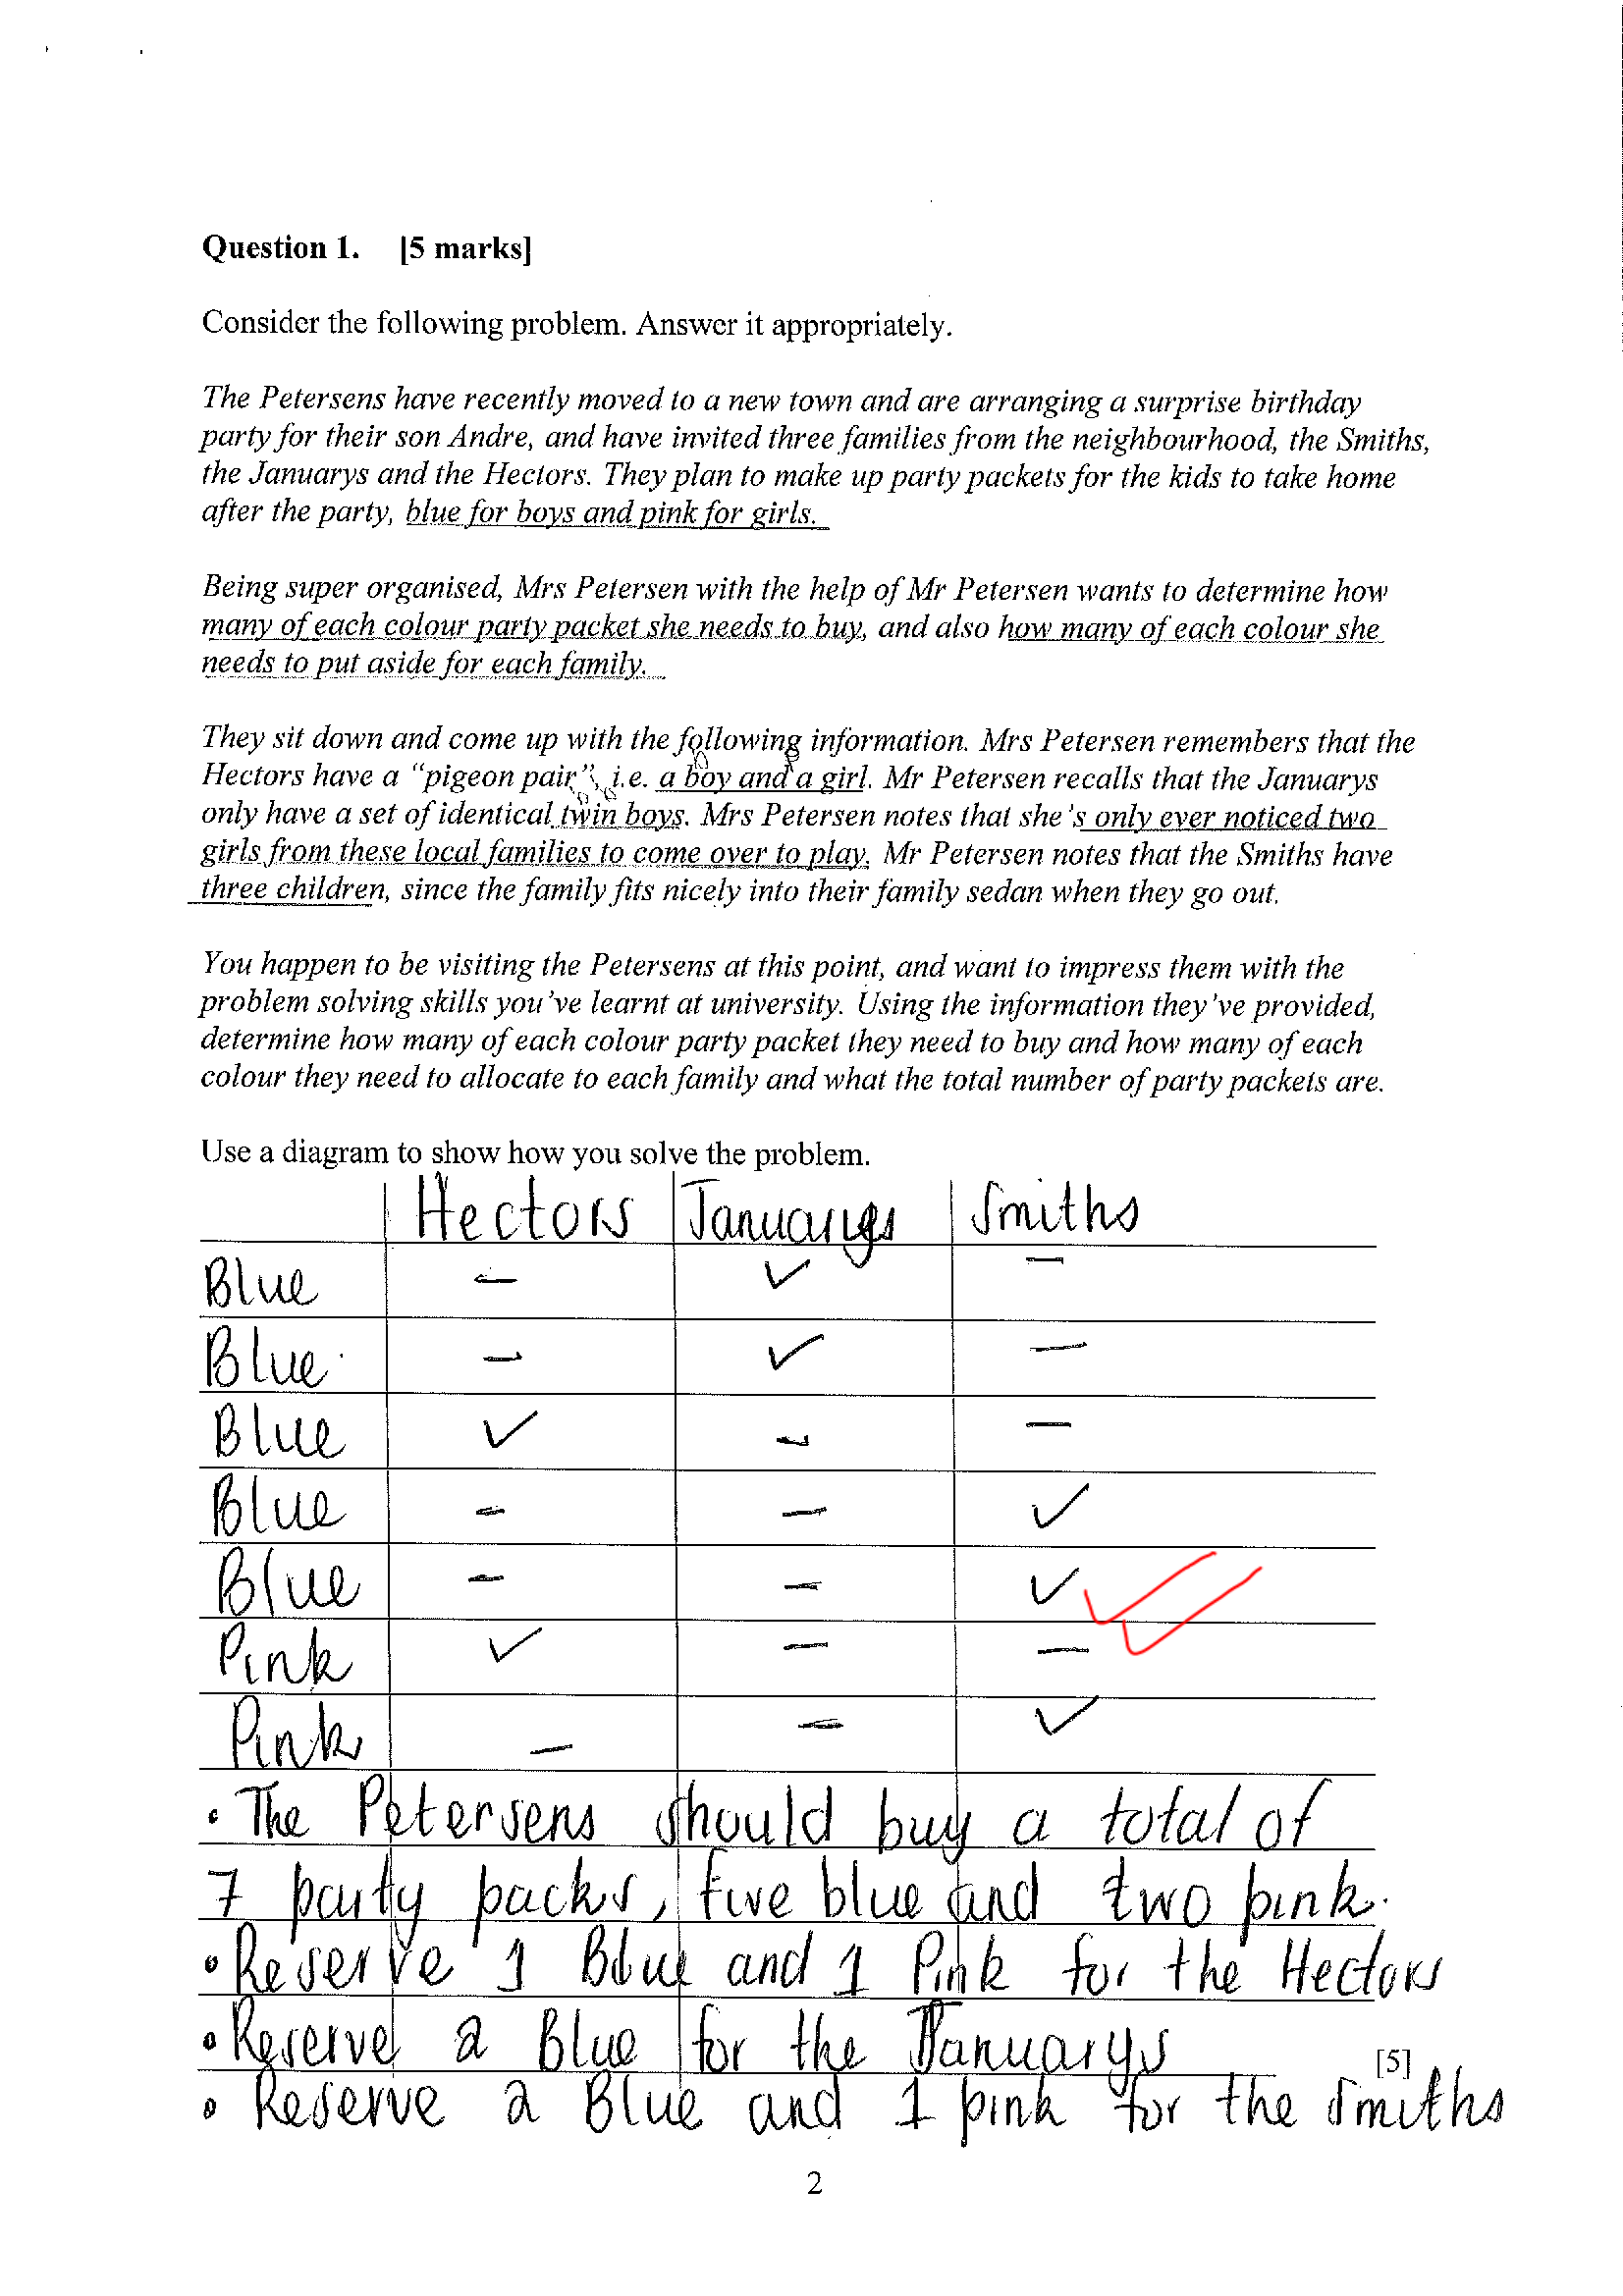 Question 1. [5 marks]
Consider the following problem. Answer it appropriately.
The Petersens have recently moved to a new town and are arranging a surprise birthday
party for their son Andre, and have invited three families from the neighbourhood, the Smiths,
the Januarys and the Hectors. They plan to make up party packets for the kids to take home
after the party, blue for boys and pink for girls.
Being super organised, Mrs Petersen with the help of Mr Petersen wants to determine how
many of each colour party packet she needs to buy, and also how many of each colour she
needs to put aside for each family.
They sit down and come up with the following information. Mrs Petersen remembers that the
Hectors have a "pigeon pair", i.e. a boy and a girl. Mr Petersen recalls that the Januarys
only have a set of identical twin boys. Mrs Petersen notes that she's only ever noticed two
girls from these local families to come over to play. Mr Petersen notes that the Smiths have
three children, since the family fits nicely into their family sedan when they go out.
You happen to be visiting the Petersens at this point, and want to impress them with the
problem solving skills you've learnt at university. Using the information they've provided,
determine how many of each colour party packet they need to buy and how many of each
colour they need to allocate to each family and what the total number of party packets are.
Use a diagram to show how you solve the problem.
Hectors Januarys Smiths
Blue - ✓ -
Blue - ✓ -
Blue ✓ - -
Blue - - ✓
Blue - - ✓
Pink ✓ - -
Pink - - ✓
• The Petersens should buy a total of
7 party packs, five blue and two pink.
• Reserve 1 Blue and 1 Pink for the Hectors
• Reserve 2 Blue for the Januarys
[5]
• Reserve 2 Blue and 1 pink for the Smiths
2